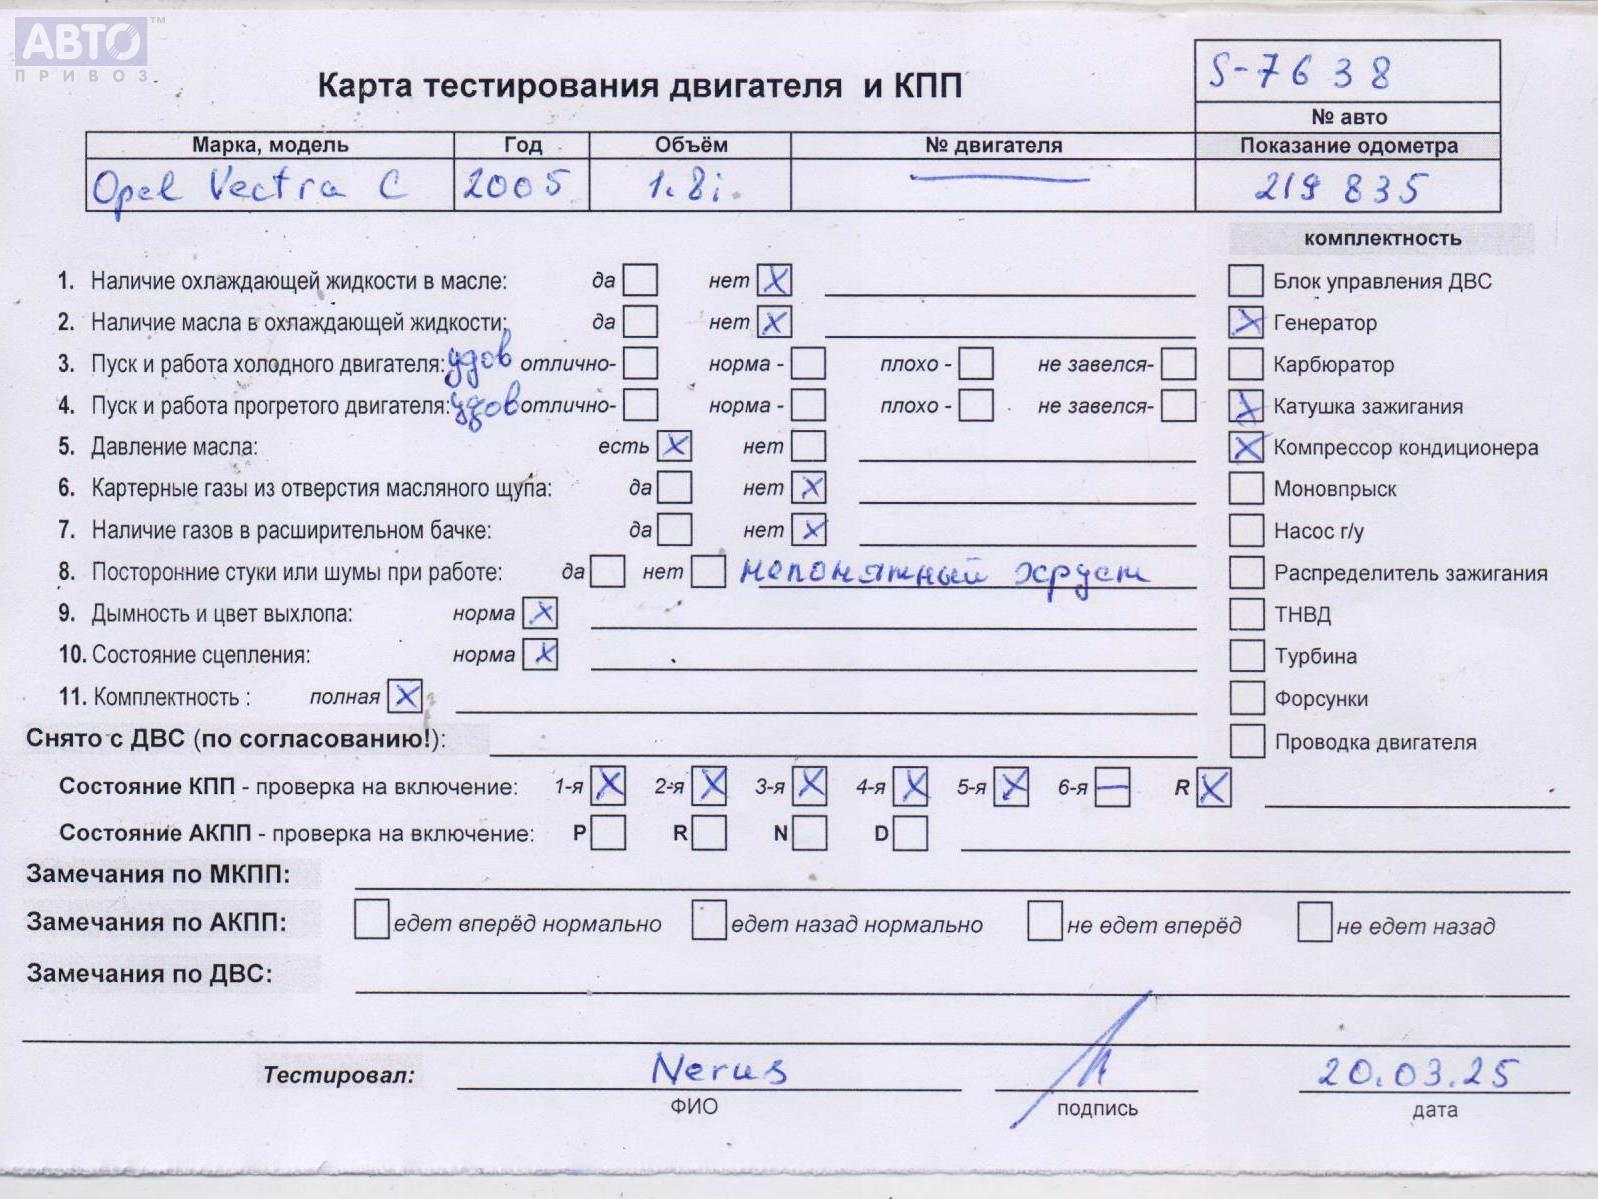 АВТО™
ПРИВОЗ
S-7638
Карта тестирования двигателя и КПП
№ авто
Марка, модель Год Объём № двигателя Показание одометра
Opel Vectra C 2005 1.8i. 219 835
комплектность
1. Наличие охлаждающей жидкости в масле: да нет X Блок управления ДВС
2. Наличие масла в охлаждающей жидкости: да нет X X Генератор
3. Пуск и работа холодного двигателя: удов отлично- норма - плохо - не завелся- Карбюратор
4. Пуск и работа прогретого двигателя: удов отлично- норма - плохо - не завелся- X Катушка зажигания
5. Давление масла: есть X нет X Компрессор кондиционера
6. Картерные газы из отверстия масляного щупа: да нет X Моновпрыск
7. Наличие газов в расширительном бачке: да нет X Насос г/у
8. Посторонние стуки или шумы при работе: да нет непонятный хруст Распределитель зажигания
9. Дымность и цвет выхлопа: норма X ТНВД
10. Состояние сцепления: норма X Турбина
11. Комплектность : полная X Форсунки
Снято с ДВС (по согласованию!): Проводка двигателя
Состояние КПП - проверка на включение: 1-я X 2-я X 3-я X 4-я X 5-я X 6-я — R X
Состояние АКПП - проверка на включение: P R N D
Замечания по МКПП:
Замечания по АКПП: едет вперёд нормально едет назад нормально не едет вперёд не едет назад
Замечания по ДВС:
Тестировал: Nerus 20.03.25
ФИО подпись дата